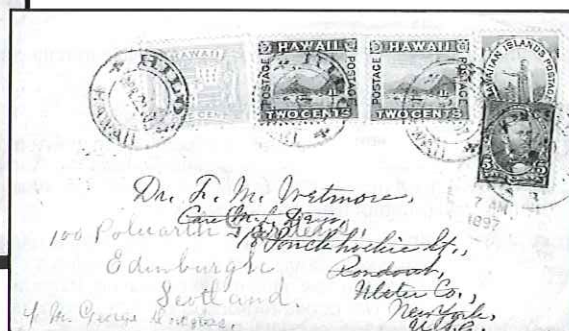 HAWAII
HILO
HAWAII
CENT
HAWAII
POSTAGE
POSTAGE
TWO CENTS
HAWAII
POSTAGE
POSTAGE
TWO CENTS
HAWAIIAN ISLANDS POSTAGE
5
7 AM
1897
Dr. F. M. Wetmore,
100 Polwarth Gardens,
Ponckhockie St.,
Edinburgh
Rondout,
Scotland.
Ulster Co.,
New York,
U.S.A.
George